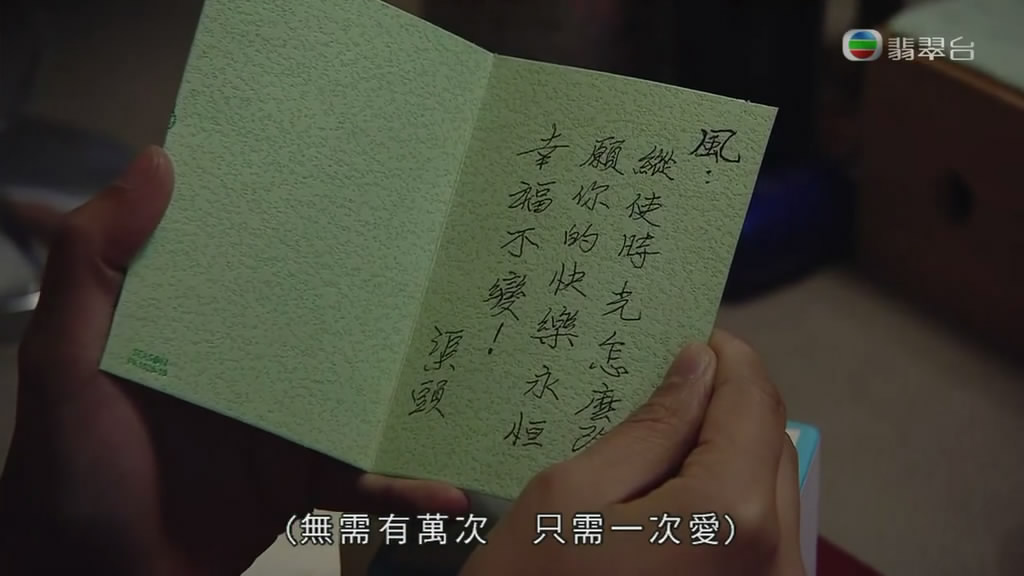 翡翠台
風:
縱使時光怎麼改
願你的快樂永恒
幸福不變!
渠頭
(無需有萬次 只需一次愛)